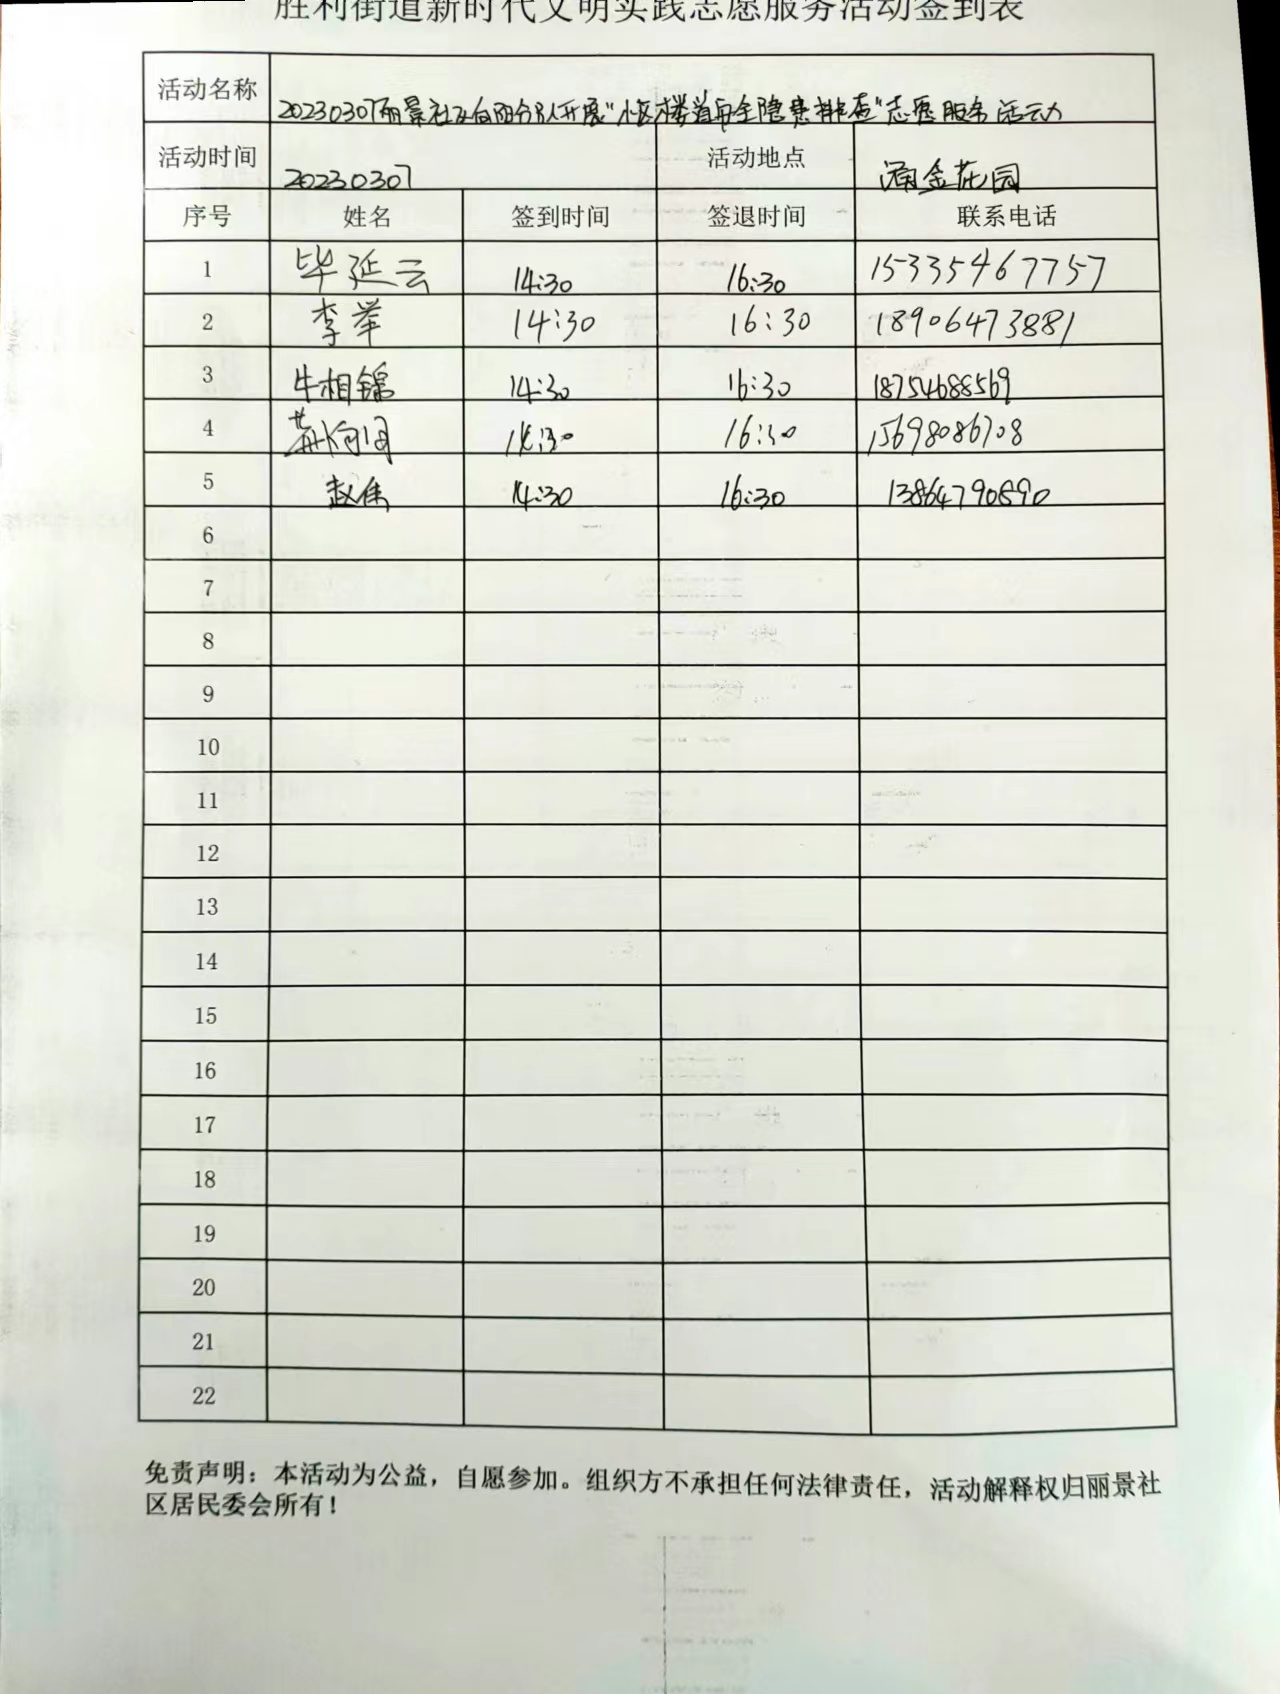 胜利街道新时代文明实践志愿服务活动签到表
活动名称 20230307丽景社区向阳分队开展“小区楼道安全隐患排查”志愿服务活动
活动时间 20230307 活动地点 涌金花园
序号 姓名 签到时间 签退时间 联系电话
1 毕延云 14:30 16:30 15335467757
2 李举 14:30 16:30 18906473881
3 牛相锦 14:30 16:30 18754688569
4 14:30 16:30 15698086708
5 赵伟 14:30 16:30 13864790890
6
7
8
9
10
11
12
13
14
15
16
17
18
19
20
21
22
免责声明：本活动为公益，自愿参加。组织方不承担任何法律责任，活动解释权归丽景社
区居民委会所有！